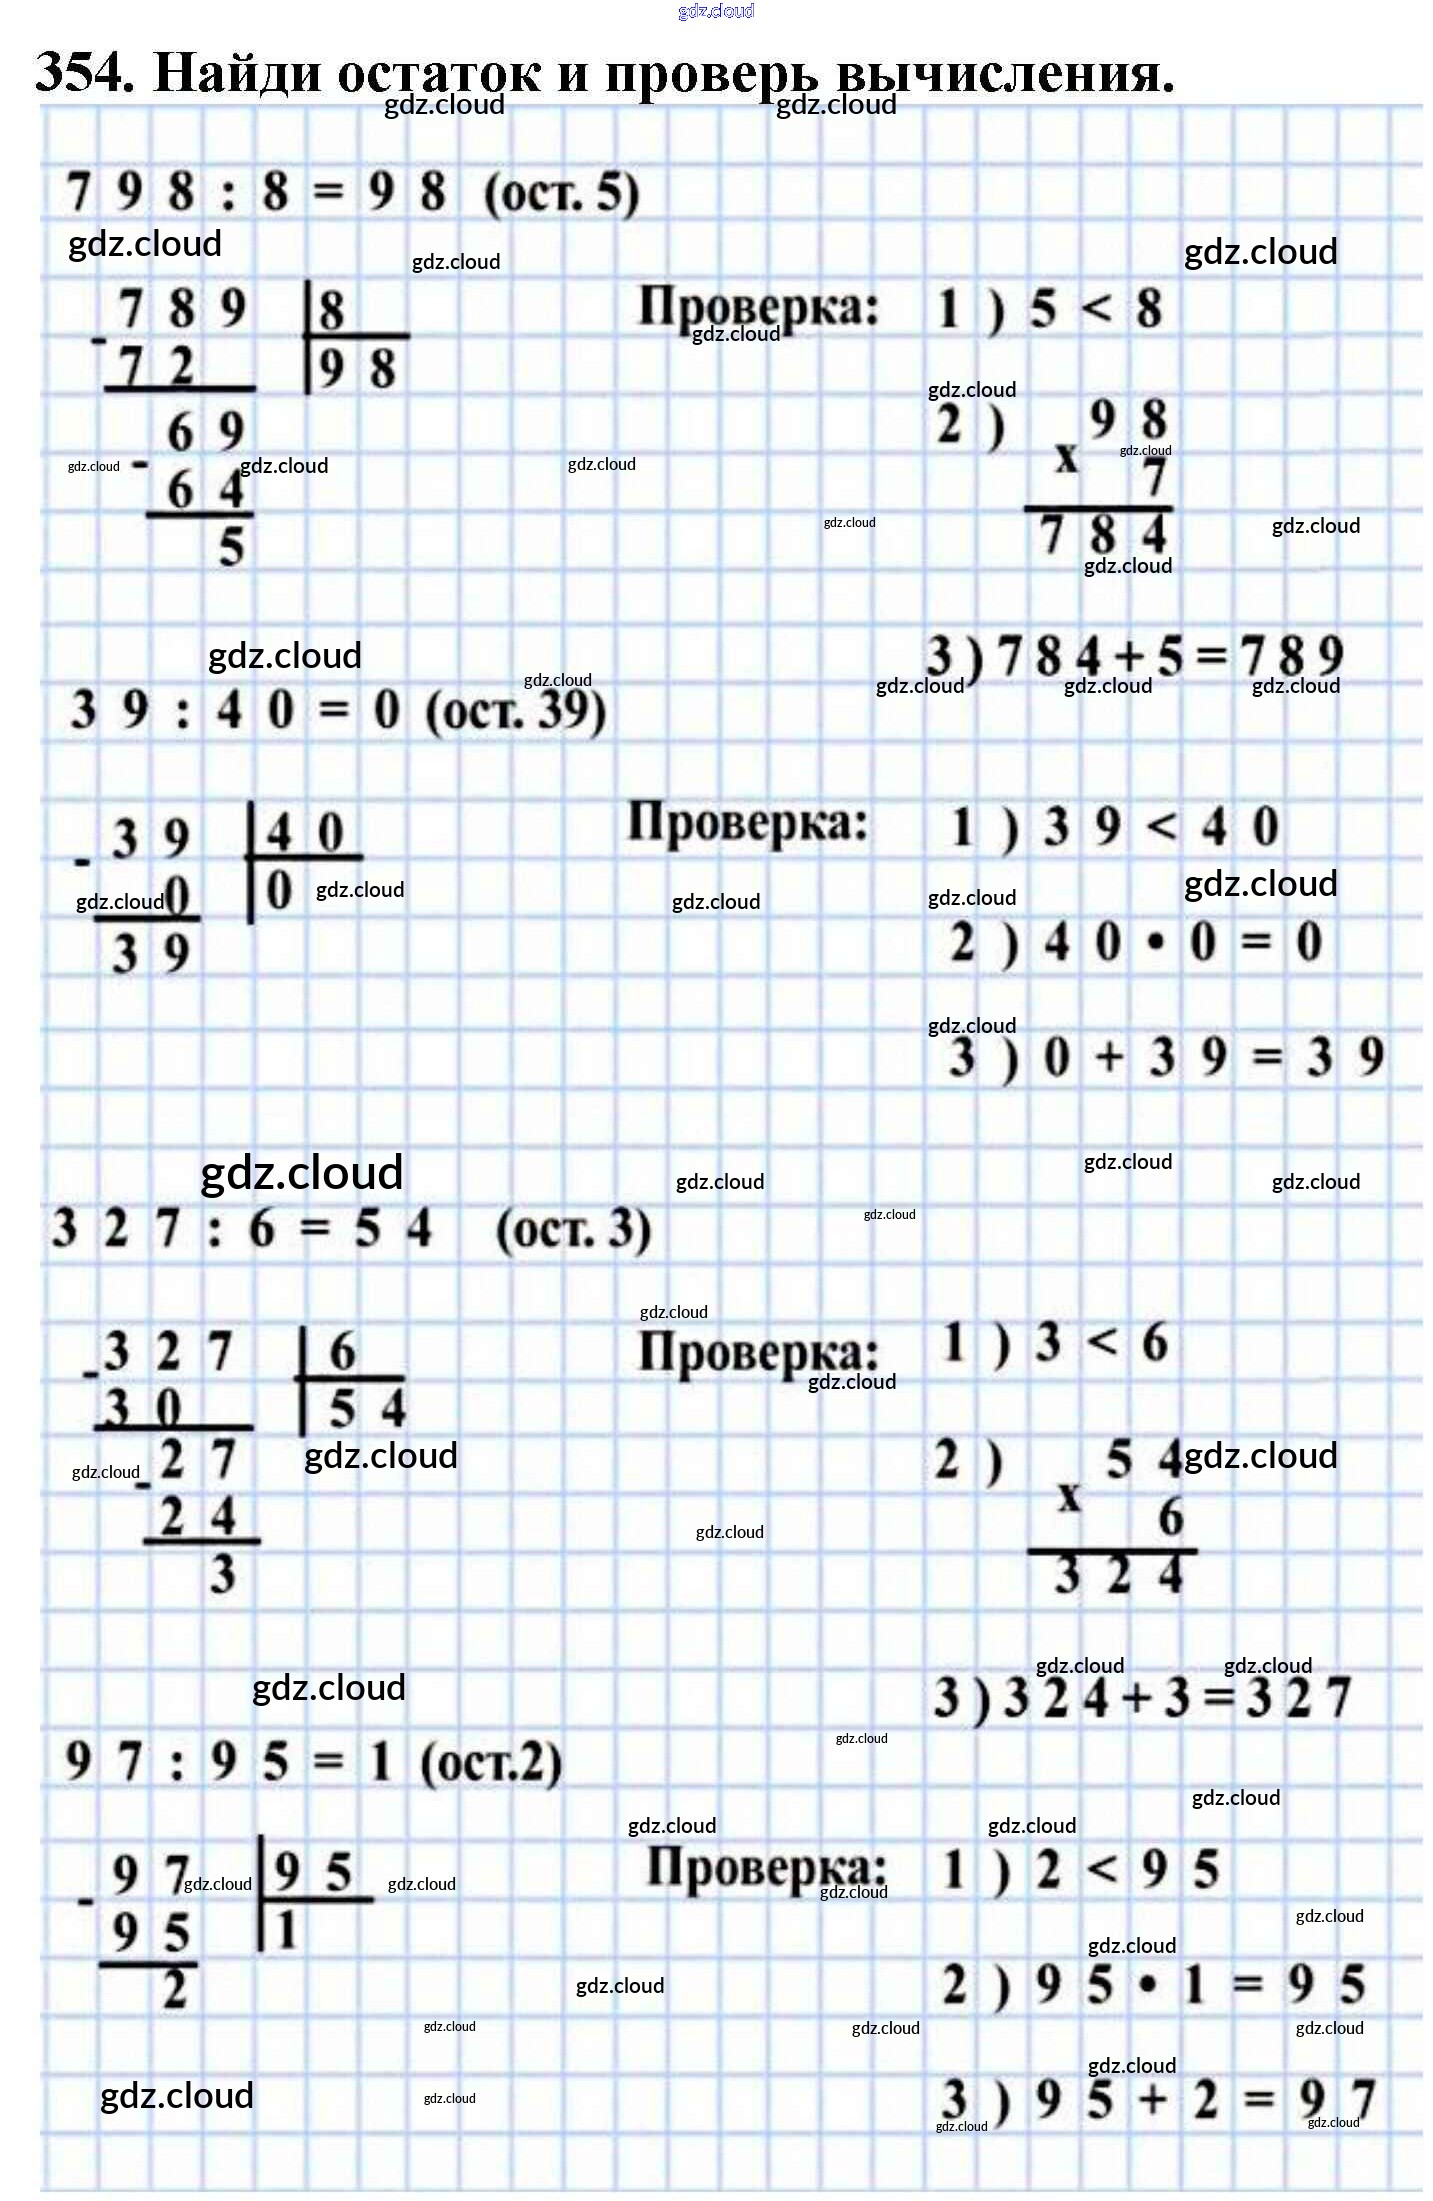 gdz.cloud
354. Найди остаток и проверь вычисления.
gdz.cloud gdz.cloud
7 9 8 : 8 = 9 8 (ост. 5)
gdz.cloud gdz.cloud gdz.cloud
- 7 8 9 | 8
7 2 | 9 8
6 9
- 6 4
5
Проверка: 1 ) 5 < 8
gdz.cloud
gdz.cloud
2 ) 9 8
x 7
7 8 4
gdz.cloud gdz.cloud gdz.cloud gdz.cloud
gdz.cloud gdz.cloud
gdz.cloud
3 ) 7 8 4 + 5 = 7 8 9
gdz.cloud gdz.cloud
gdz.cloud gdz.cloud gdz.cloud
3 9 : 4 0 = 0 (ост. 39)
- 3 9 | 4 0
0 | 0
3 9
gdz.cloud gdz.cloud
Проверка: 1 ) 3 9 < 4 0
gdz.cloud gdz.cloud gdz.cloud
2 ) 4 0 • 0 = 0
gdz.cloud
3 ) 0 + 3 9 = 3 9
gdz.cloud gdz.cloud gdz.cloud gdz.cloud
gdz.cloud
3 2 7 : 6 = 5 4 (ост. 3)
- 3 2 7 | 6
3 0 | 5 4
- 2 7
2 4
3
gdz.cloud
Проверка: 1 ) 3 < 6
gdz.cloud
2 ) 5 4
x 6
3 2 4
gdz.cloud gdz.cloud gdz.cloud
gdz.cloud
gdz.cloud gdz.cloud gdz.cloud
3 ) 3 2 4 + 3 = 3 2 7
gdz.cloud
9 7 : 9 5 = 1 (ост.2)
gdz.cloud
gdz.cloud gdz.cloud
- 9 7 | 9 5
9 5 | 1
2
gdz.cloud gdz.cloud
Проверка: 1 ) 2 < 9 5
gdz.cloud
gdz.cloud
gdz.cloud
2 ) 9 5 • 1 = 9 5
gdz.cloud
gdz.cloud gdz.cloud gdz.cloud
gdz.cloud
3 ) 9 5 + 2 = 9 7
gdz.cloud gdz.cloud
gdz.cloud gdz.cloud